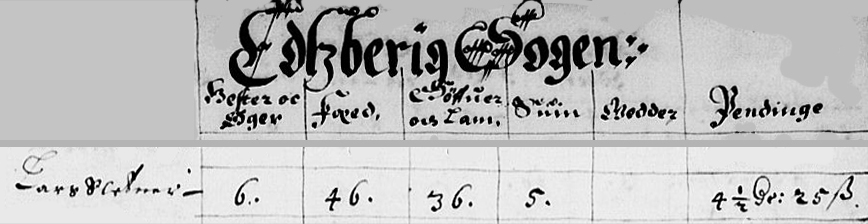 Edtzberig Sogen:
Hester oc Øger
Fæed.
Søffuer och Lam.
Suin
Pendinge
Lars Sletner 6. 46. 36. 5. 4½ de: 25 ß.